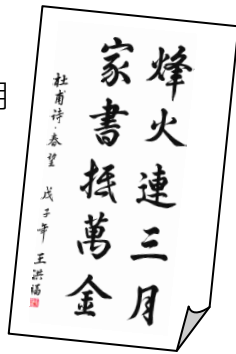 烽火連三月
家書抵萬金
杜甫诗·春望 戊子年 王洪福